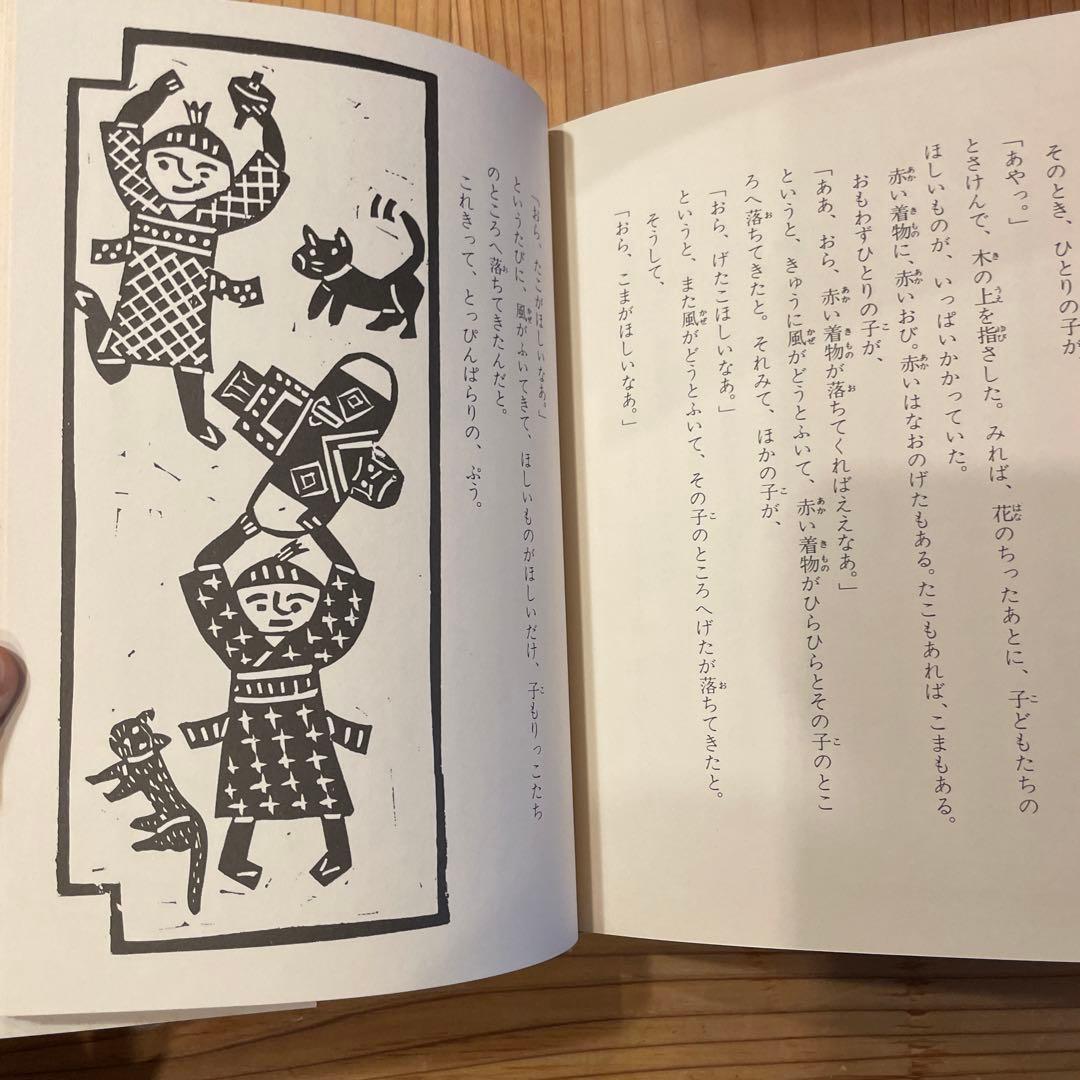 そのとき、ひとりの子が
「あやっ。」
とさけんで、木の上を指さした。みれば、花のちったあとに、子どもたちの
ほしいものが、いっぱいかかっていた。
赤い着物に、赤いおび。赤いはなおのげたもある。たこもあれば、こまもある。
おもわずひとりの子が、
「ああ、おら、赤い着物が落ちてくればええなあ。」
というと、きゅうに風がどうとふいて、赤い着物がひらひらとその子のとこ
ろへ落ちてきたと。それみて、ほかの子が、
「おら、げたこほしいなあ。」
というと、また風がどうとふいて、その子のところへげたが落ちてきたと。
そうして、
「おら、こまがほしいなぁ。」
「おら、たこがほしいなぁ。」
というたびに、風がふいてきて、ほしいものがほしいだけ、子もりっこたち
のところへ落ちてきたんだと。
これきって、とっぴんぱらりの、ぷう。